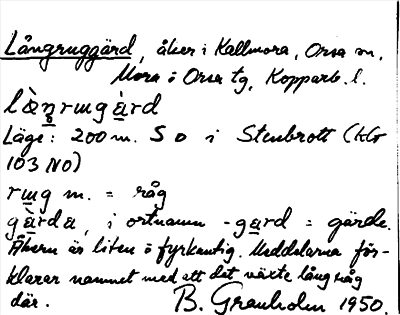 Långruggärd, åker i Kallmora, Orsa sn,
Mora o Orsa tg, Kopparb. l.
là̀ŋrɯgàrd
Läge: 200 m. S o i Stenbrott (kbr
103 NO)
rɯg m. = råg
gàrda, i ortnamn -gard = gärde.
Åkern är liten o fyrkantig. Meddelarna för-
klarar namnet med att det växte lång råg
där. B. Granholm 1950.